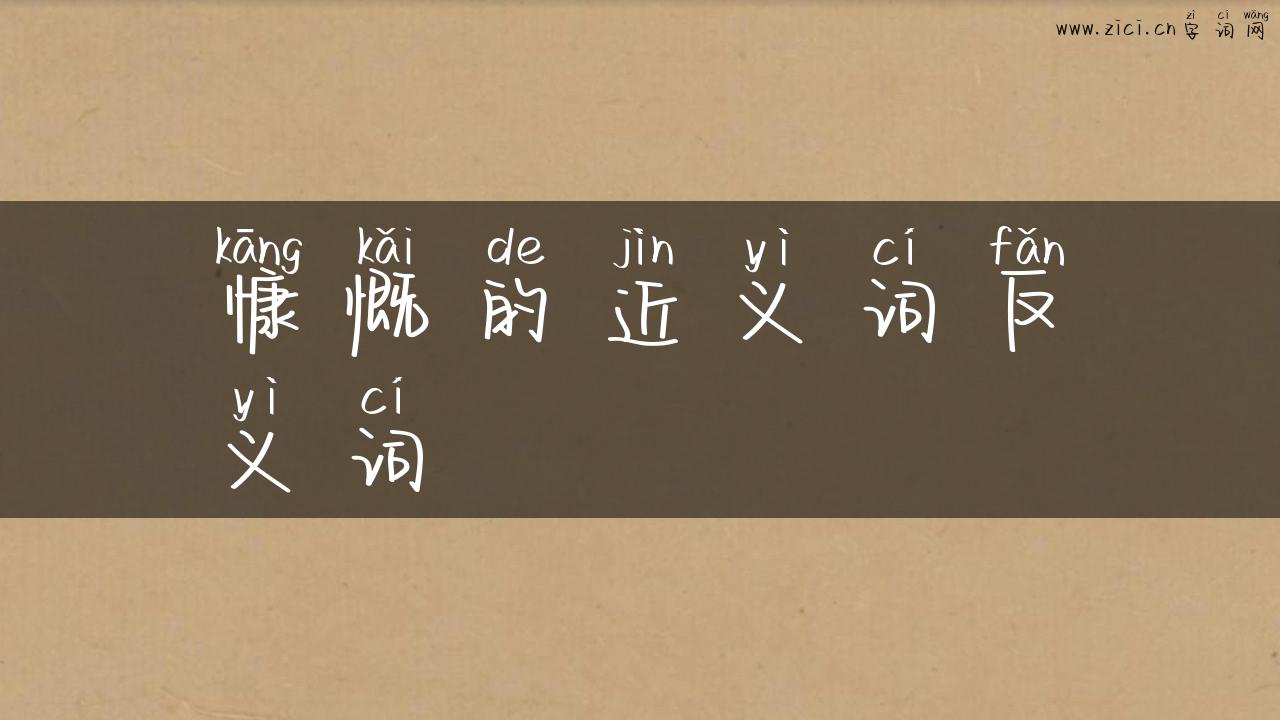 zì cí wǎng
www.zici.cn 字词网
kāng kǎi de jìn yì cí fǎn
慷慨的近义词反
yì cí
义词